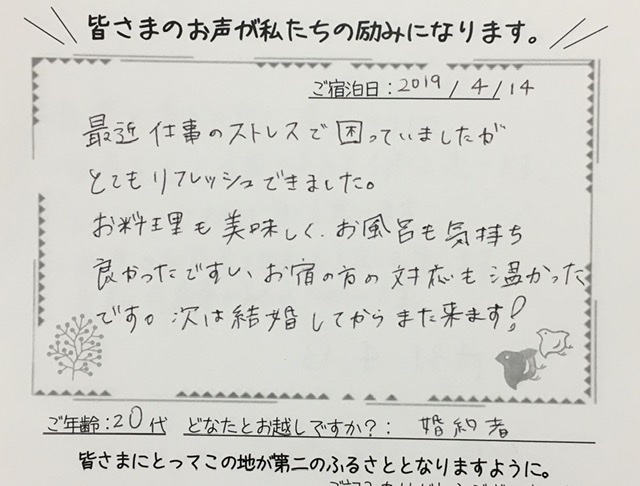 皆さまのお声が私たちの励みになります。
ご宿泊日:2019/4/14
最近仕事のストレスで困っていましたが
とてもリフレッシュできました。
お料理も美味しく、お風呂も気持ち
良かったですし、お宿の方の対応も温かった
です。次は結婚してからまた来ます!
ご年齢:20代 どなたとお越しですか?: 婚約者
皆さまにとってこの地が第二のふるさととなりますように。